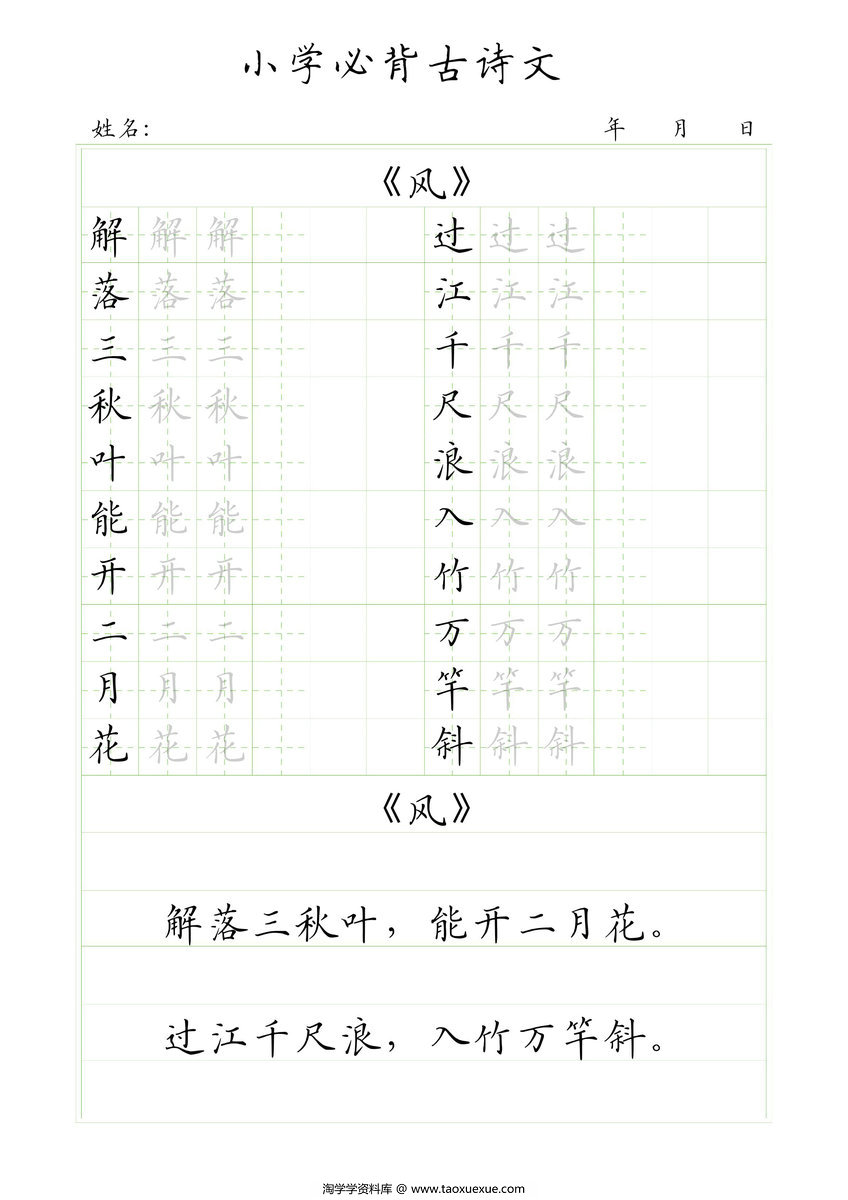 小学必背古诗文
姓名: 年 月 日
《风》
解 解 解 过 过 过
落 落 落 江 江 江
三 三 三 千 千 千
秋 秋 秋 尺 尺 尺
叶 叶 叶 浪 浪 浪
能 能 能 入 入 入
开 开 开 竹 竹 竹
二 二 二 万 万 万
月 月 月 竿 竿 竿
花 花 花 斜 斜 斜
《风》
解落三秋叶，能开二月花。
过江千尺浪，入竹万竿斜。
淘学学资料库 @ www.taoxuexue.com